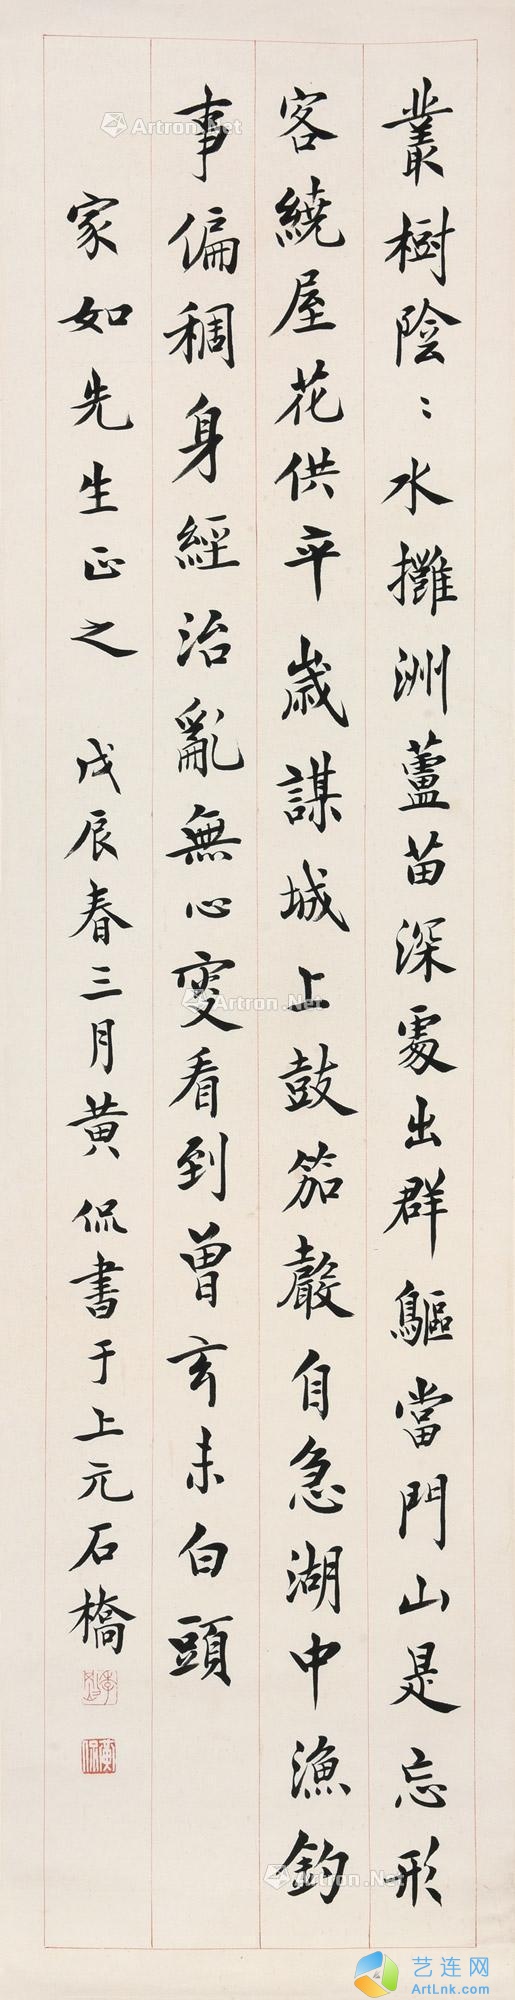 叢樹陰〻水攤洲蘆苗深處出群驅當門山是忘形
客繞屋花供平歲謀城上鼓笳聲自急湖中漁釣
事偏稠身經治亂無心變看到曾玄未白頭
家如先生正之 戊辰春三月黃侃書于上元石橋
黃侃
Artron.Net
Artron.Net
Artron.Net
Artron.Net
艺连网
ArtLnk.com